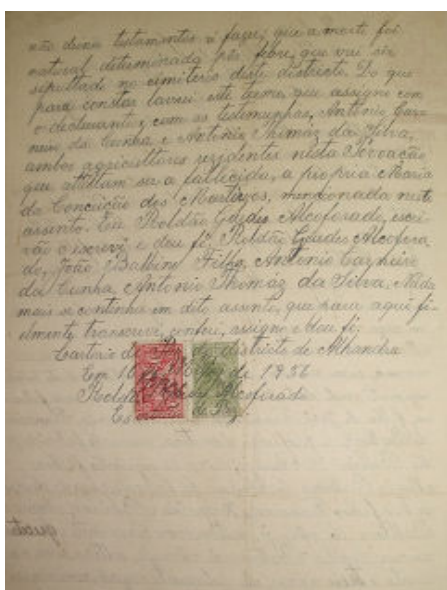 não deixa testamentos a fazer, que a morte foi
natural determinada por febre, que vai ser
sepultado no cimiterio deste districto. Do que
para constar lavrei este termo, que assigno com
o declarante e com as testimunhas, Antônio Carneiro
da Cunha e Antonio Thomáz da Silva,
ambos agricultores rezidentes nesta Povoação,
que attestam ser a fallecida, a propria Maria
da Conceição dos Martizes, mencionada neste
assento. Eu Roldão Guedes Alcoforado, escri
vão o escrevi e dou fé, Roldão Guedes Alcofora
do, João Balbino Filho, Antonio Carneiro
da Cunha, Antonio Thomáz da Silva. Nada
mais se continha em dito assento, que para aqui fi
elmente transcrevi, conferi, assigno e dou fé.
Cartorio de districto de Alhandra
Em de 1936
Roldão Alcoforad